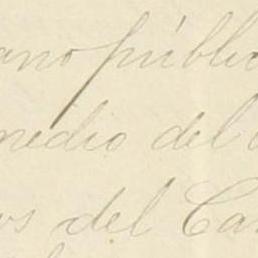 ano públic
medio del
os del Ca